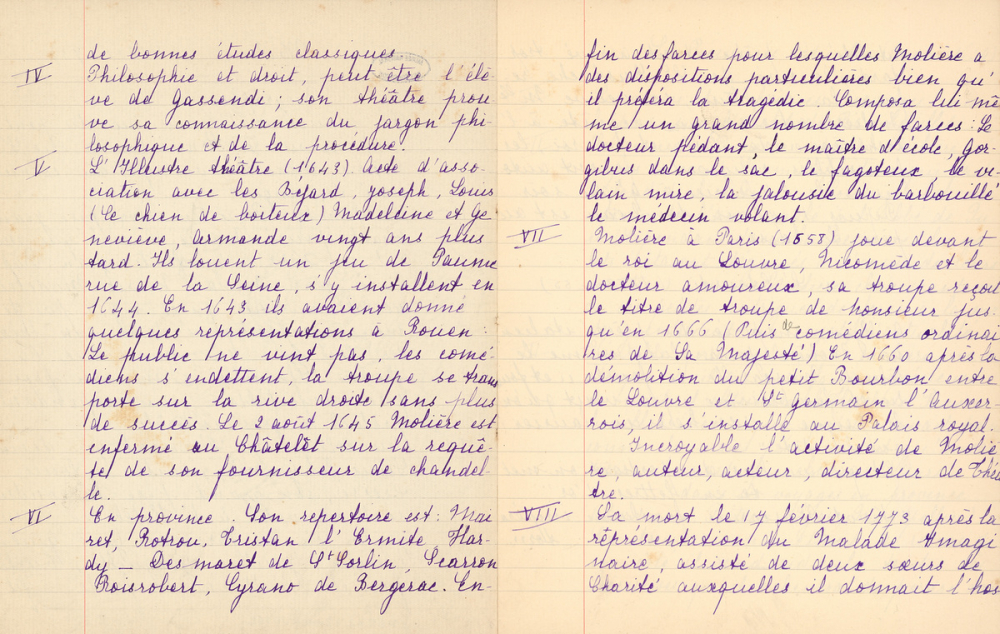 de bonnes études classiques
IV
Philosophie et droit, peut être l'élè
ve de Gassendi ; son théâtre prou
ve sa connaissance du jargon phi-
losophique et de la procédure.
V
L'Illustre théâtre (1643) Acte d'asso-
ciation avec les Bejard, Joseph, Louis
(Le chien de boiteux) Madeleine et Ge
neviève, Armande vingt ans plus
tard. Ils louent un jeu de Paume
rue de la Seine, s'y installent en
1644. En 1643 ils avaient donné
quelques représentations à Rouen :
Le public ne vint pas, les comé-
diens s'endettent, la troupe se trans
porte sur la rive droite sans plus
de succès. Le 2 août 1645 Molière est
enfermé au Châtelêt sur la requê-
te de son fournisseur de chandel-
le.
VI
En province. Son repertoire est : Mai
ret, Rotrou, Tristan l'Ermite Har-
dy – Desmaret de St Sorlin, Scarron
Boisrobert, Cyrano de Bergerac. En-
fin des farces pour lesquelles Molière a
des dispositions particulières bien qu'
il préféra la tragédie. Composa lui-mê
me un grand nombre de farces : Le
docteur pédant, le maître d'école, Gor-
gibus dans le sac, le fagoteux, le vi-
lain mire, la jalousie du barbouillé
le médecin volant.
VII
Molière à Paris (1658) joue devant
le roi au Louvre, Nicomède et le
docteur amoureux, sa troupe reçoit
le titre de troupe de Monsieur jus-
qu'en 1666 (Puis de comédiens ordinai
res de Sa Majesté) En 1660 après la
démolition du petit Bourbon entre
le Louvre et St Germain l'Auxer-
rois, il s'installe au Palais royal.
Incroyable l'activité de Moliè
re, auteur, acteur, directeur de Théâ
tre.
VIII
Sa mort le 17 février 1773 après la
réprésentation du Malade Imagi
naire, assisté de deux sœurs de
Charité auxquelles il donnait l'hos